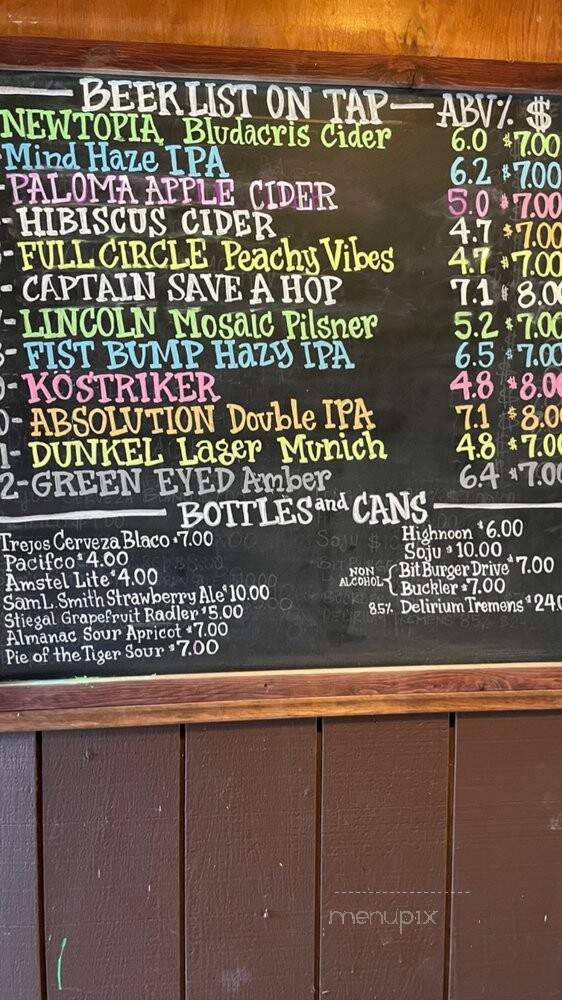 BEER LIST ON TAP ABV% $
NEWTOPIA Bludacris Cider 6.0 $7.00
Mind Haze IPA 6.2 $7.00
-PALOMA APPLE CIDER 5.0 $7.00
-HIBISCUS CIDER 4.7 $7.00
-FULL CIRCLE Peachy Vibes 4.7 $7.00
- CAPTAIN SAVE A HOP 7.1 $8.00
-LINCOLN Mosaic Pilsner 5.2 $7.00
-FIST BUMP Hazy IPA 6.5 $7.00
-KÖSTRIKER 4.8 $8.00
0-ABSOLUTION Double IPA 7.1 $8.00
1-DUNKEL Lager Munich 4.8 $7.00
2-GREEN EYED Amber 6.4 $7.00
BOTTLES and CANS
Trejos Cerveza Blaco $7.00
Pacifco $4.00
Amstel Lite $4.00
Sam L. Smith Strawberry Ale $10.00
Stiegal Grapefruit Radler $5.00
Almanac Sour Apricot $7.00
Pie of the Tiger Sour $7.00
Highnoon $6.00
Soju $10.00
NON ALCOHOL { Bit Burger Drive $7.00
Buckler $7.00
8.5% Delirium Tremens $24.0
menupix